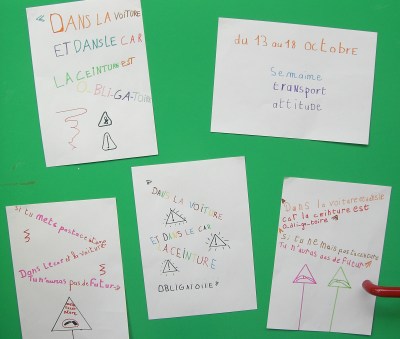 DANS LA VOITURE
ET DANS LE CAR
LA CEINTURE EST
OBLIGATOIRE
du 13 au 18 octobre
Semaine
transport
attitude
Si tu mets pas ta ceinture
Dans le car et la voiture
Tu n'auras pas de futur
DANS LA VOITURE
ET DANS LE CAR
LA CEINTURE
OBLIGATOIRE
Dans la voiture et dans le
car la ceinture est
obligatoire
Si tu ne mais pas ta ceinture
Tu n'auras pas de futur